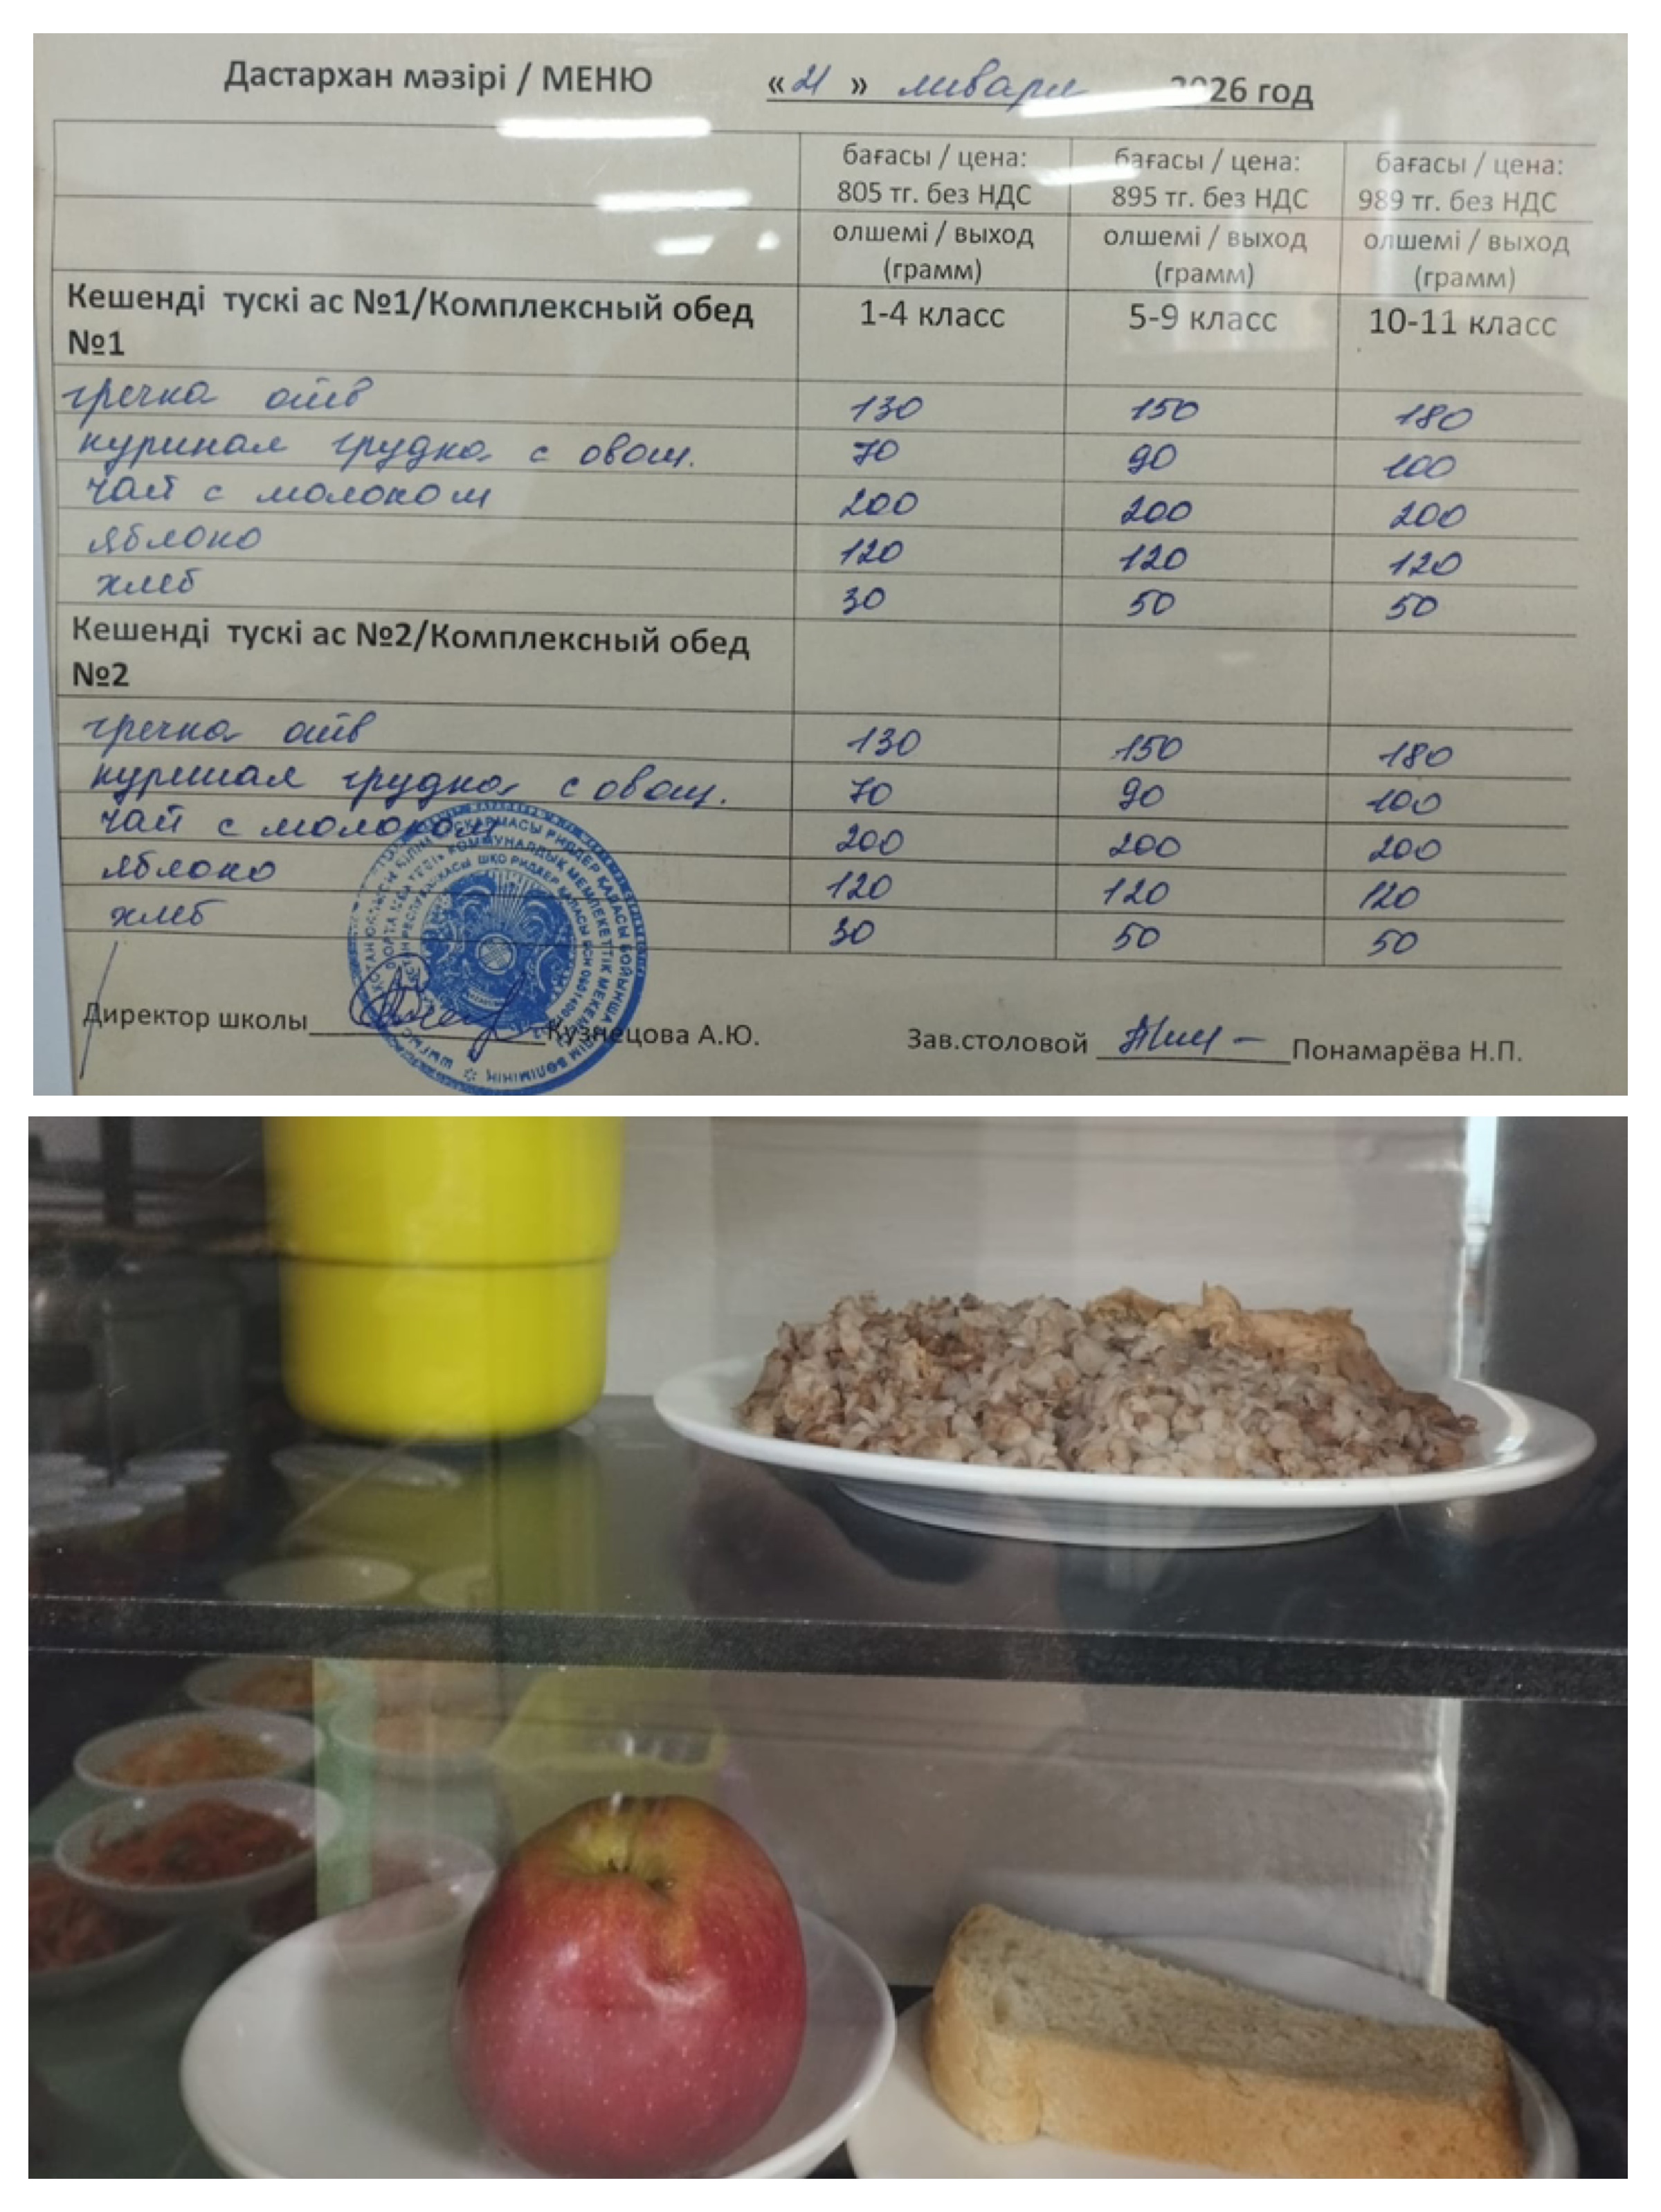 Дастархан мәзірі / МЕНЮ «21» января 2026 год
бағасы / цена: бағасы / цена: бағасы / цена:
805 тг. без НДС 895 тг. без НДС 989 тг. без НДС
олшемі / выход олшемі / выход олшемі / выход
(грамм) (грамм) (грамм)
Кешенді тускі ас №1/Комплексный обед 1-4 класс 5-9 класс 10-11 класс
№1
гречка отв 130 150 180
куриная грудка с овощ. 70 90 100
чай с молоком 200 200 200
яблоко 120 120 120
хлеб 30 50 50
Кешенді тускі ас №2/Комплексный обед
№2
гречка отв 130 150 180
куриная грудка с овощ. 70 90 100
чай с молоком 200 200 200
яблоко 120 120 120
хлеб 30 50 50
Директор школы Кузнецова А.Ю. Зав.столовой Понамарёва Н.П.
РИДДЕР ҚАЛАСЫ БОЙЫНША
КОММУНАЛДЫҚ МЕМЛЕКЕТТІК МЕКЕМЕСІ
ШҚО РИДДЕР ҚАЛАСЫ